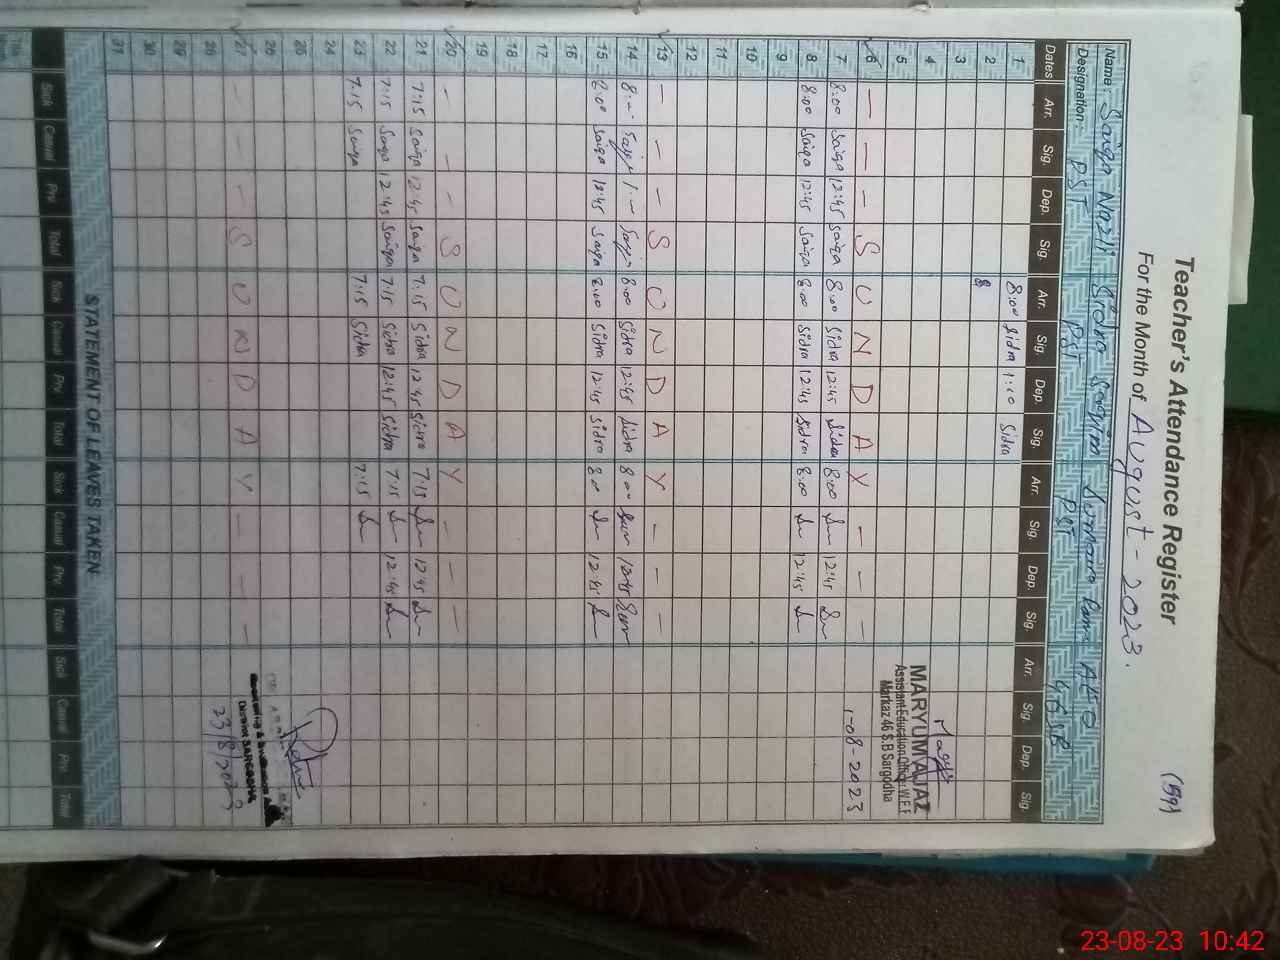 (59)
Teacher's Attendance Register
For the Month of August - 2023.
Name: Saiqa Nazli Sidra AEO
Designation: PST PST PST 46 SB
Dates Arr. Sig. Dep. Sig. Arr. Sig. Dep. Sig. Arr. Sig. Dep. Sig. Arr. Sig. Dep. Sig.
1 8:00 Sidra 1:10 Sidra
2 8
3
4
5
6 — — — S U N D A Y — — —
7 8:00 Saiqa 12:45 Saiqa 8:00 Sidra 12:45 Sidra 8:00 12:45
8 8:00 Saiqa 12:45 Saiqa 8:00 Sidra 12:45 Sidra 8:00 12:45
9
10
11
12
13 — — — S U N D A Y — — —
14 8:— 1:— 8:00 Sidra 12:45 Sidra 8:00 12:45
15 8:00 Saiqa 12:45 Saiqa 8:00 Sidra 12:45 Sidra 8:00 12:45
16
17
18
19
20 — — — S U N D A Y — — —
21 7:15 Saiqa 12:45 Saiqa 7:15 Sidra 12:45 Sidra 7:15 12:45
22 7:15 Saiqa 12:45 Saiqa 7:15 Sidra 12:45 Sidra 7:15 12:45
23 7:15 Saiqa 7:15 Sidra 7:15
24
25
26
27 — — — S U N D A Y — — —
28
29
30
31
MARYUM AJAZ
Assistant Education Officer W.E.E
Markaz 46 S.B Sargodha
1-08-2023
District SARGODHA
23/8/2023
STATEMENT OF LEAVES TAKEN
Sick Casual Prv Total Sick Casual Prv Total Sick Casual Prv Total Sick Casual Prv Total
23-08-23 10:42